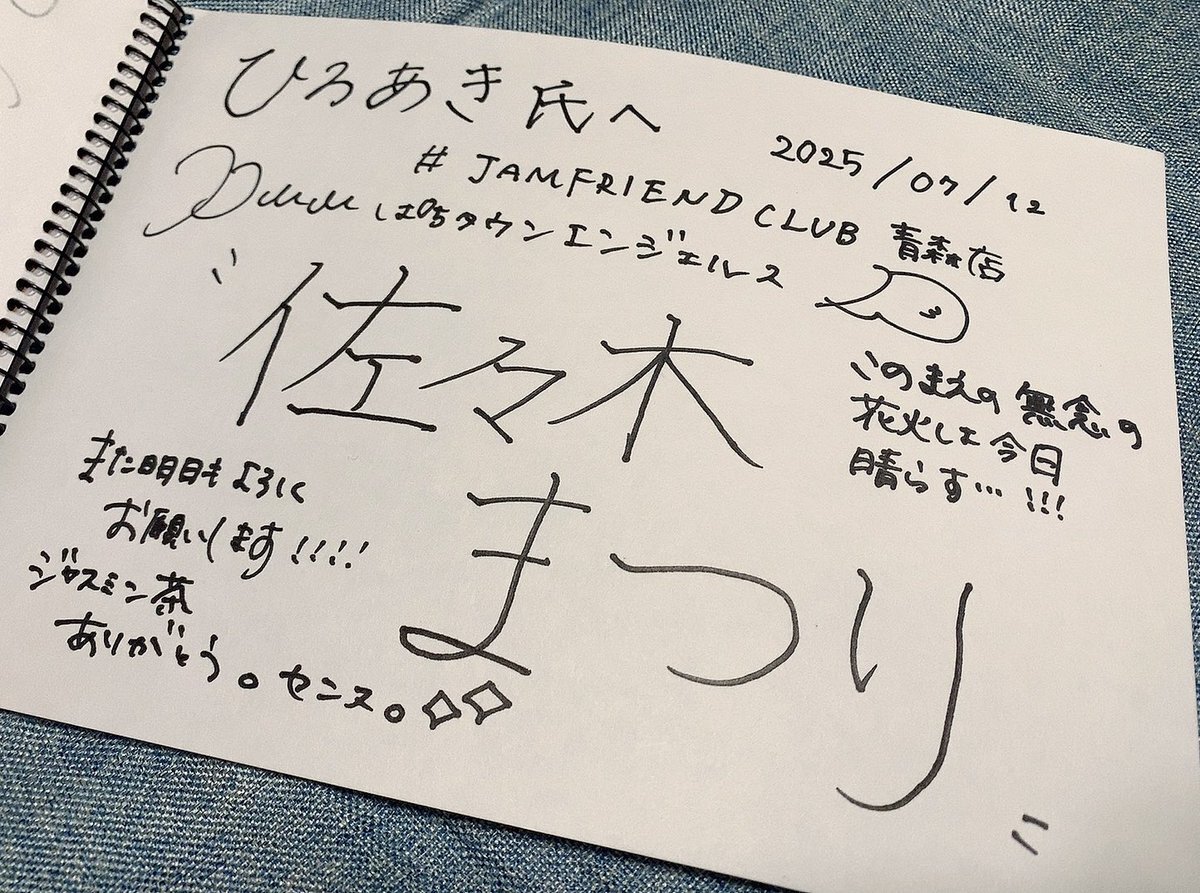 ひろあき氏へ
2025/07/12
# JAMFRIEND CLUB 青森店
は05タウンエンジェルス
"佐々木
まつり"
このまえの無念の
花火は今日
晴らす…!!!
また明日もよろしく
お願いします!!!!
ジャスミン茶
ありがとう。センス。